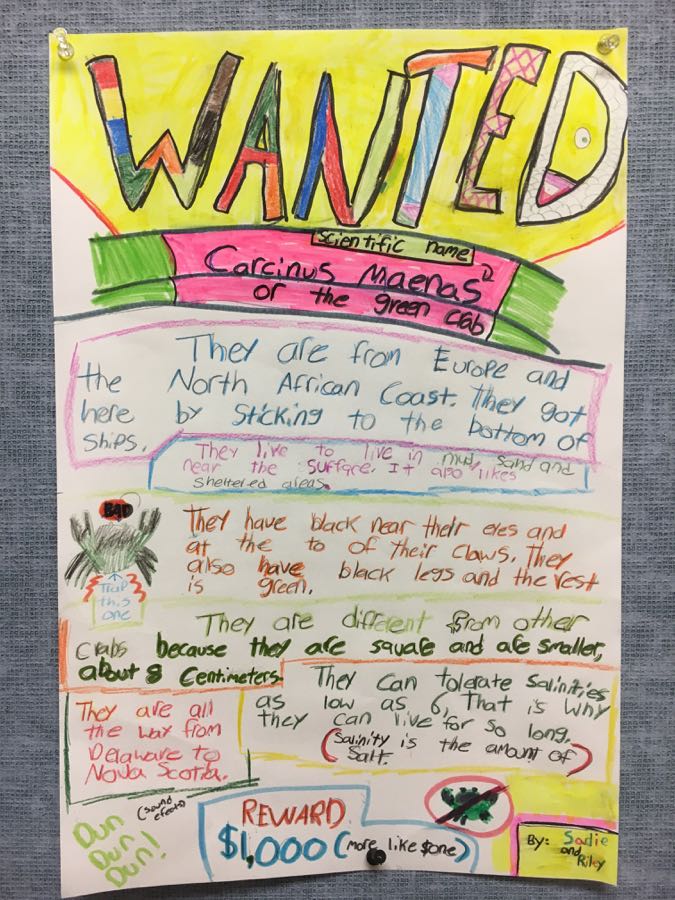 WANTED
Scientific name
Carcinus Maenas
or the green crab
They are from Europe and
the North African Coast. They got
here by Sticking to the bottom of
Ships.
They live to live in mud, sand and
near the surface. It also likes
Sheltered areas.
BAD
Trap
this
one
They have black near their eyes and
at the to of their claws. They
also have black legs and the rest
is green.
They are different from other
Crabs because they are square and are smaller,
about 8 Centimeters.
They can tolerate Salinities
as low as 6, That is why
they can live for so long.
(Salinity is the amount of
Salt.)
They are all
the way from
Delaware to
Nova Scotia.
(sound
effects)
Dun
Dun
Dun!
REWARD
$1,000 (more like $one)
By: Sadie
and
Riley